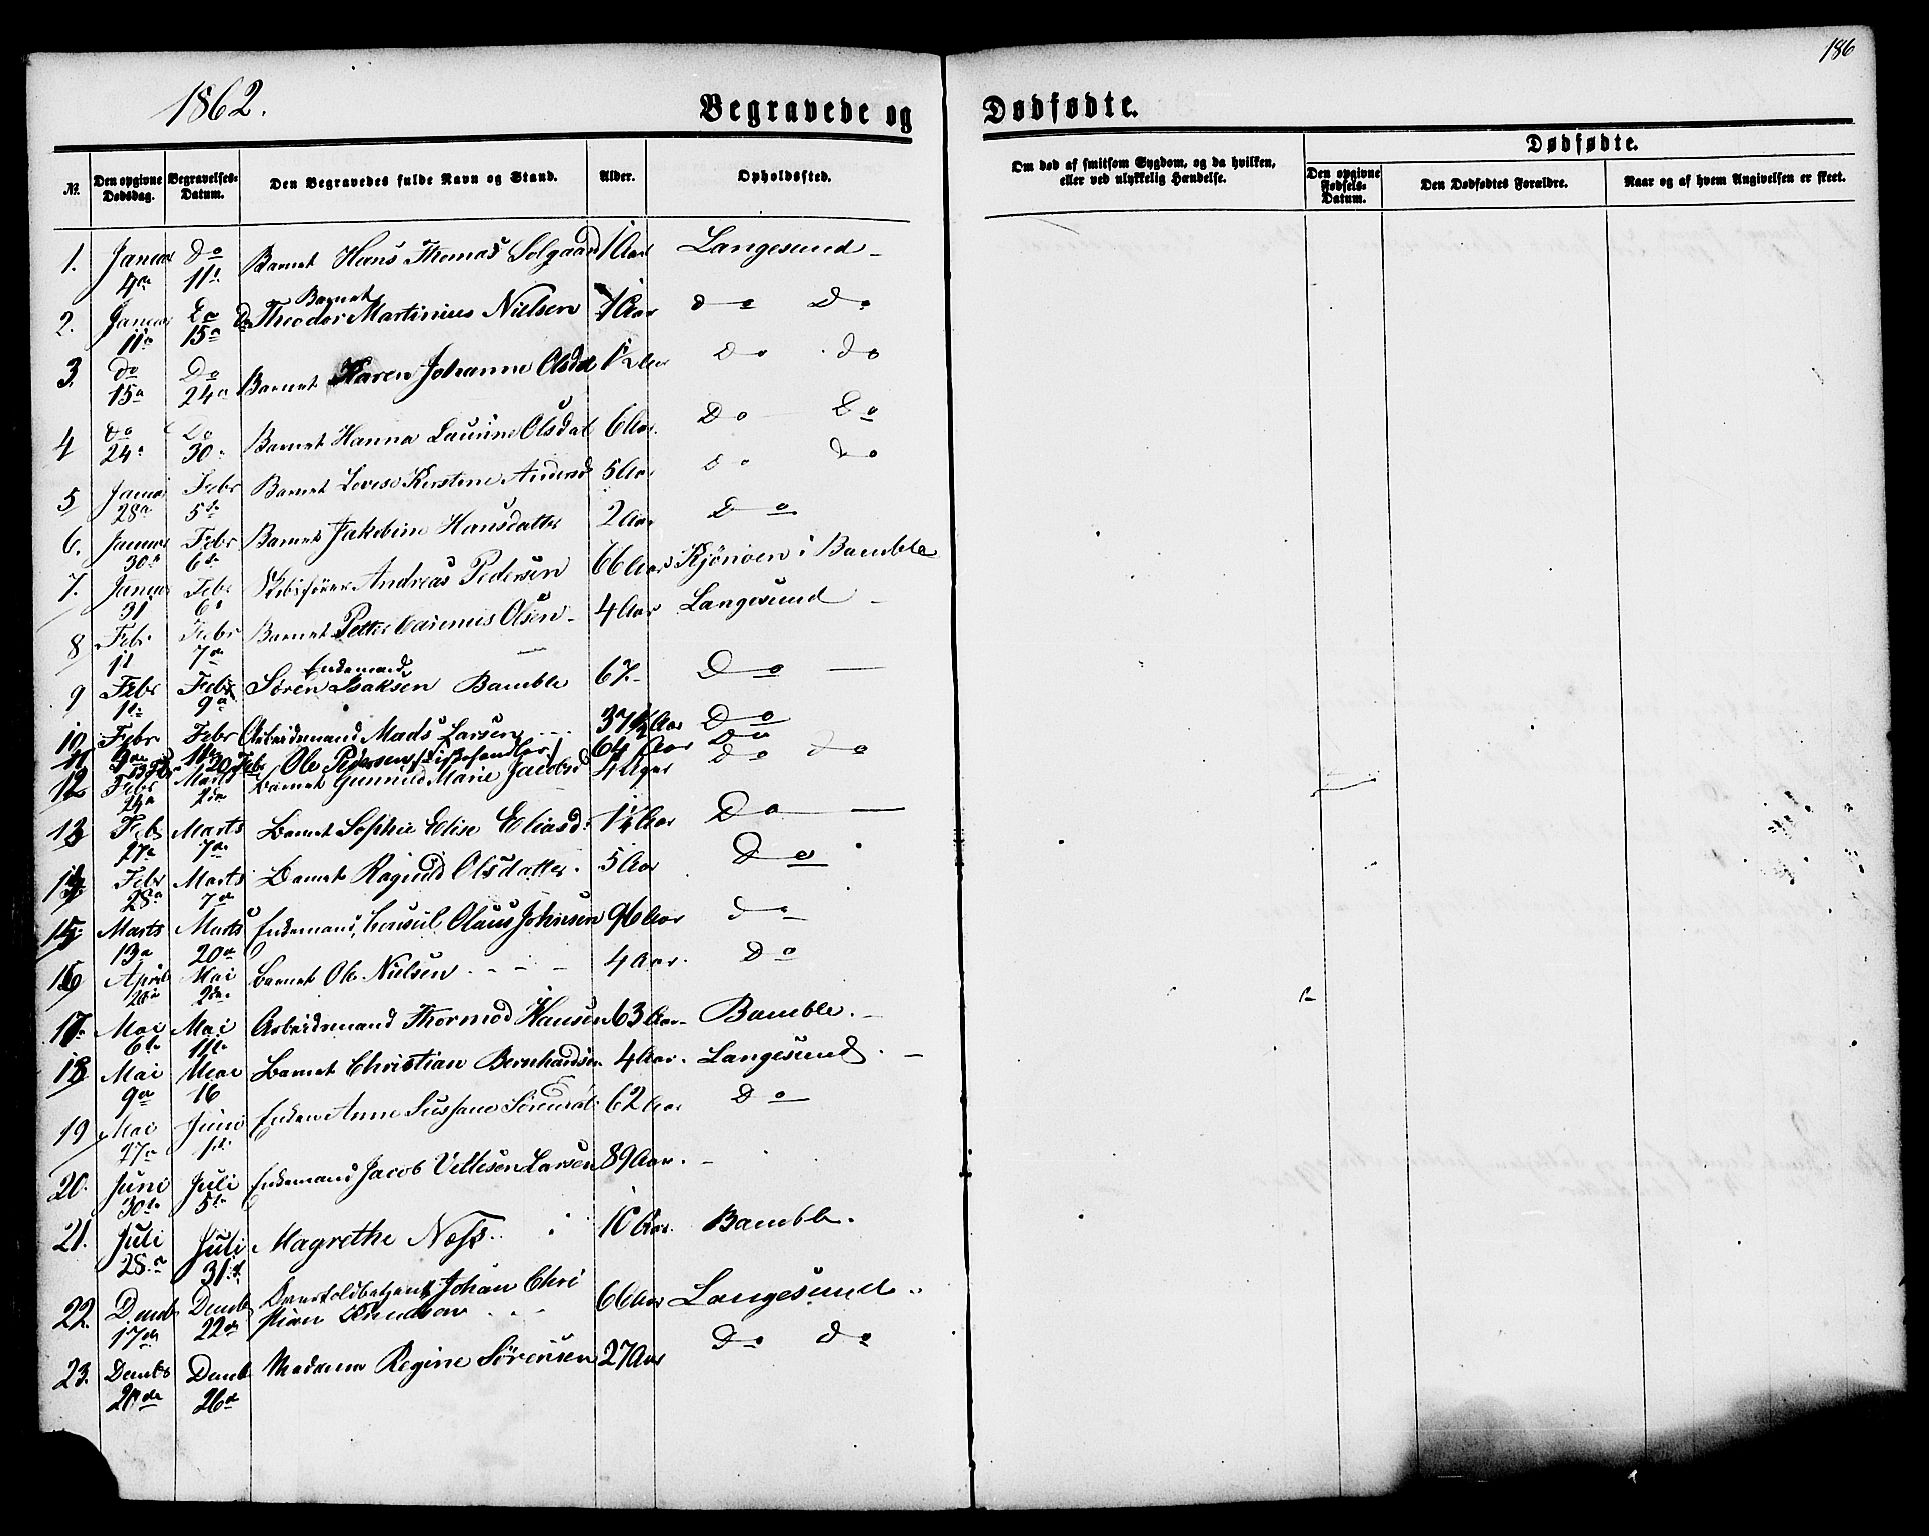 186
1862.
Begravede og Dødfødte.
No. Den opgivne Dødsdag. Begravelses-Datum. Den Begravedes fulde Navn og Stand. Alder. Opholdssted. Om død af smitsom Sygdom, og da hvilken, eller ved ulykkelig Hændelse. Dødfødte.
Den opgivne Fødsels-Datum. Den Dødfødtes Forældre. Naar og af hvem Angivelsen er skeet.
1. Januar 4de Do 11te Barnet Hans Thomas Solgaard 1 Aar Langesund
2. Januar 11te Do 15de Barnet Theodor Martinius Nielsen 1 Aar do Do
3. do 15de Do 24de Barnet Karen Johanne Olsdat 1½ Aar Do do
4 do 24de Do 30te Barnet Hanna Laurine Olsdat 6 Aar. Do Do
5 Januar 28de Febr 5te Barnet Lovise Kirstine Andersd 5 Aar Do do
6. Januar 30te Febr 6te Barnet Jakobine Hansdatter 2 Aar Do
7. Januar 31 Febr 6te Skibsfører Andreas Pedersen 66 Aar Kjønøen i Bamble
8 Febr 1t Febr 7de Barnet Petter Olsen 4 Aar Langesund
9 Febr 1te Febr 9de Enkemand Søren Isaksen Bamble 67 Do
10 Febr 9de Febr 11te Arbeidsmand Mads Larsen 37½ Aar Do
11 13 Febr 20 Febr Ole Pedersen, (Fiskehandler) 64 Aar Do
12 Febr 24de Marts 2de Barnet Gunnild Marie Jacobsd 4 Aar do do
13 Feb 27de Marts 7de Barnet Sophie Elise Eliasd: 1¼ Aar Do
14 Febr 28de Marts 7de Barnet Ragnild Olsdatter. 5 Aar Do
15 Marts 13de Marts 20de Enkemand, Consul Olaus Johnsen 96 Aar do
16 April Mai 2den Barnet Ole Nielsen 4 Aar. Do
17 Mai 6te Mai 11te Arbeidsmand Thormod Hansen 63 Aar Bamble.
18 Mai 9de Mai 16 Barnet Christian Bernhardsen 4 Aar. Langesund
19 Mai 27de Juni 1te Enken Anne Susane Sørensdt. 62 Aar Do
20. Juni 30te Juli 5te Enkemand Jacob Vettesen Larsen 89 Aar.
21. Juli 28de Juli 31te Magrethe Næss. 10 Aar. Bamble.
22. Decmb 17de Decmb 22de Overtoldbetjent Johan Chri
stian Knudsen 66 Aar Langesund
23. Decmb 20de Decmb 26de Madame Regine Sørensen 27 Aar do do